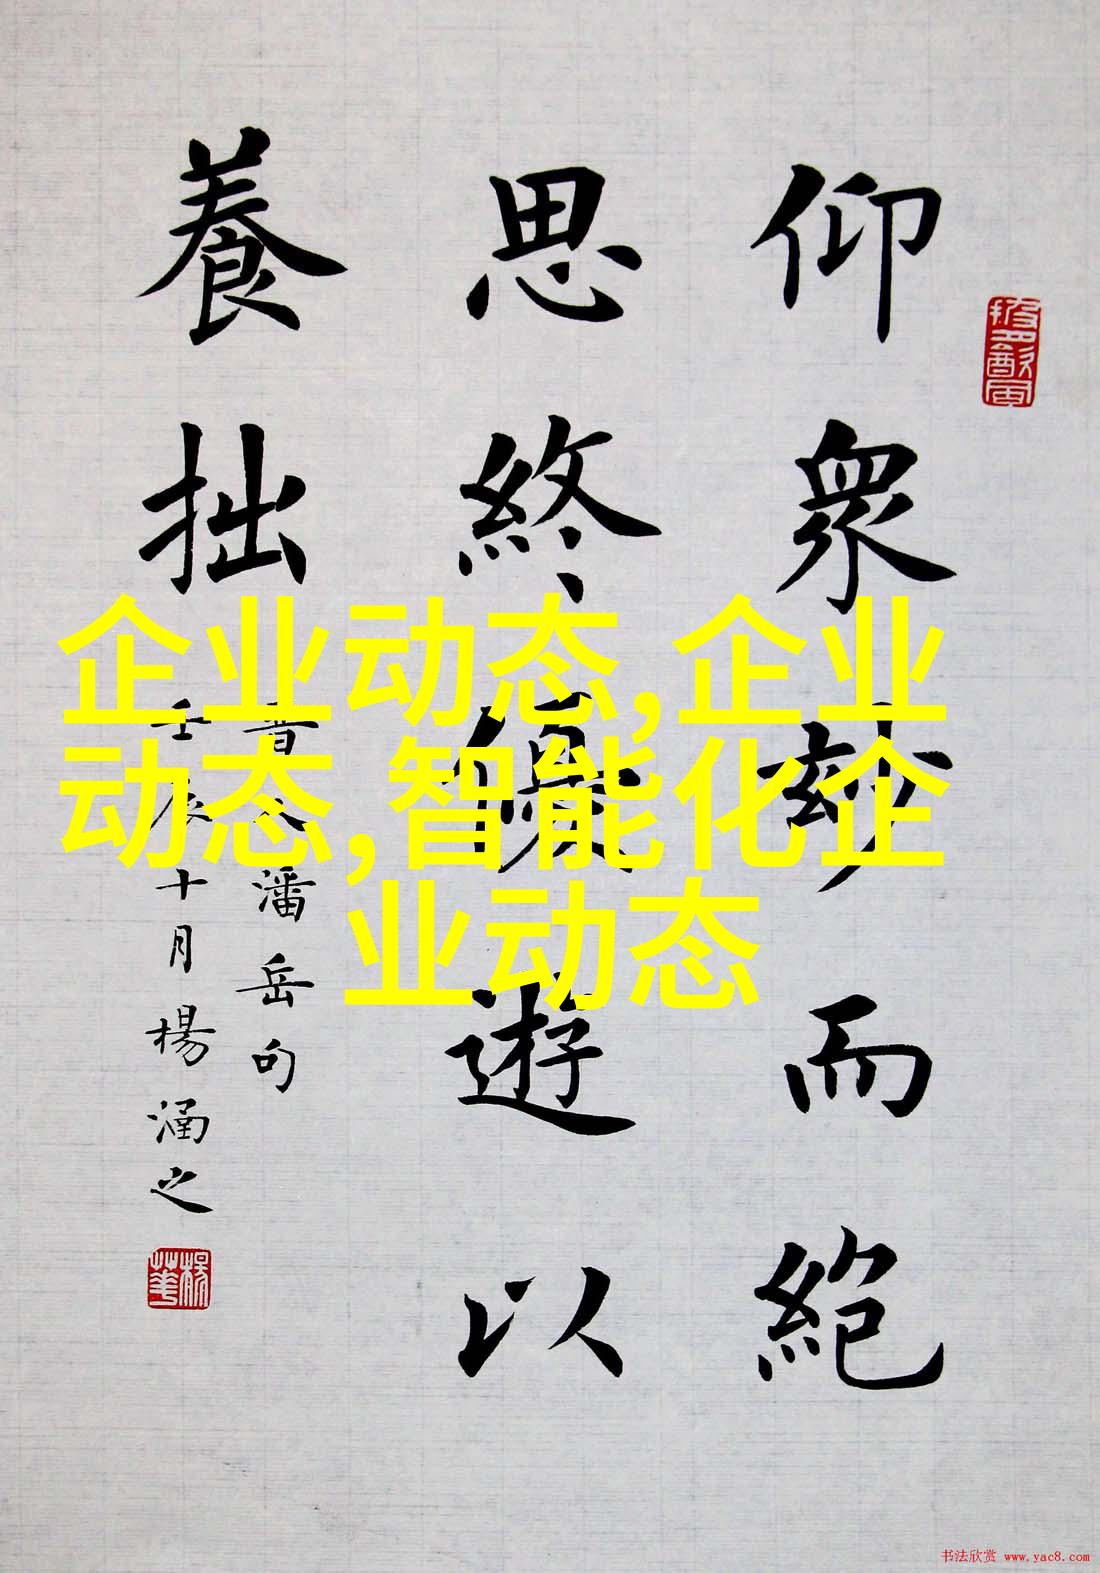 仰衆妙而絶
思終優遊以
養拙
晋人潘岳句
壬辰十月楊涵之
楊華
企业动态,企业
动态,智能化企
业动态
书法欣赏 www.yac8.com